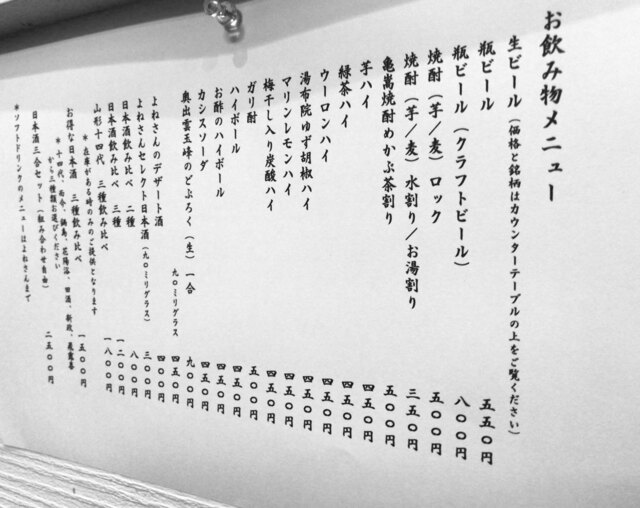 お飲み物メニュー
生ビール（価格と銘柄はカウンターテーブルの上をご覧ください）
瓶ビール 五五〇円
瓶ビール（クラフトビール） 八〇〇円
焼酎（芋／麦）ロック 五〇〇円
焼酎（芋／麦）水割り／お湯割り 三五〇円
亀嵩焼酎めかぶ茶割り 五〇〇円
芋ハイ 四五〇円
緑茶ハイ 四五〇円
ウーロンハイ 四五〇円
湯布院ゆず胡椒ハイ 四五〇円
マリンレモンハイ 四五〇円
梅干し入り炭酸ハイ 四五〇円
ガリ酎 五〇〇円
ハイボール 四五〇円
お酢のハイボール 四五〇円
カシスソーダ 四五〇円
奥出雲玉峰のどぶろく（生）一合 九〇〇円
よねさんのデザート酒 九〇ミリグラス 四五〇円
よねさんセレクト日本酒（九〇ミリグラス） 四〇〇円
日本酒飲み比べ 二種 三〇〇円
日本酒飲み比べ 三種 八〇〇円
山形十四代 三種飲み比べ 一二〇〇円
＊在庫がある時のみのご提供となります 一八〇〇円
お得な日本酒 三種飲み比べ 一五〇〇円
＊十四代、而今、鍋島、花陽浴、田酒、新政、飛露喜
から三種類お選びください
日本酒三合セット（組み合わせ自由） 二五〇〇円
＊ソフトドリンクのメニューはよねさんまで